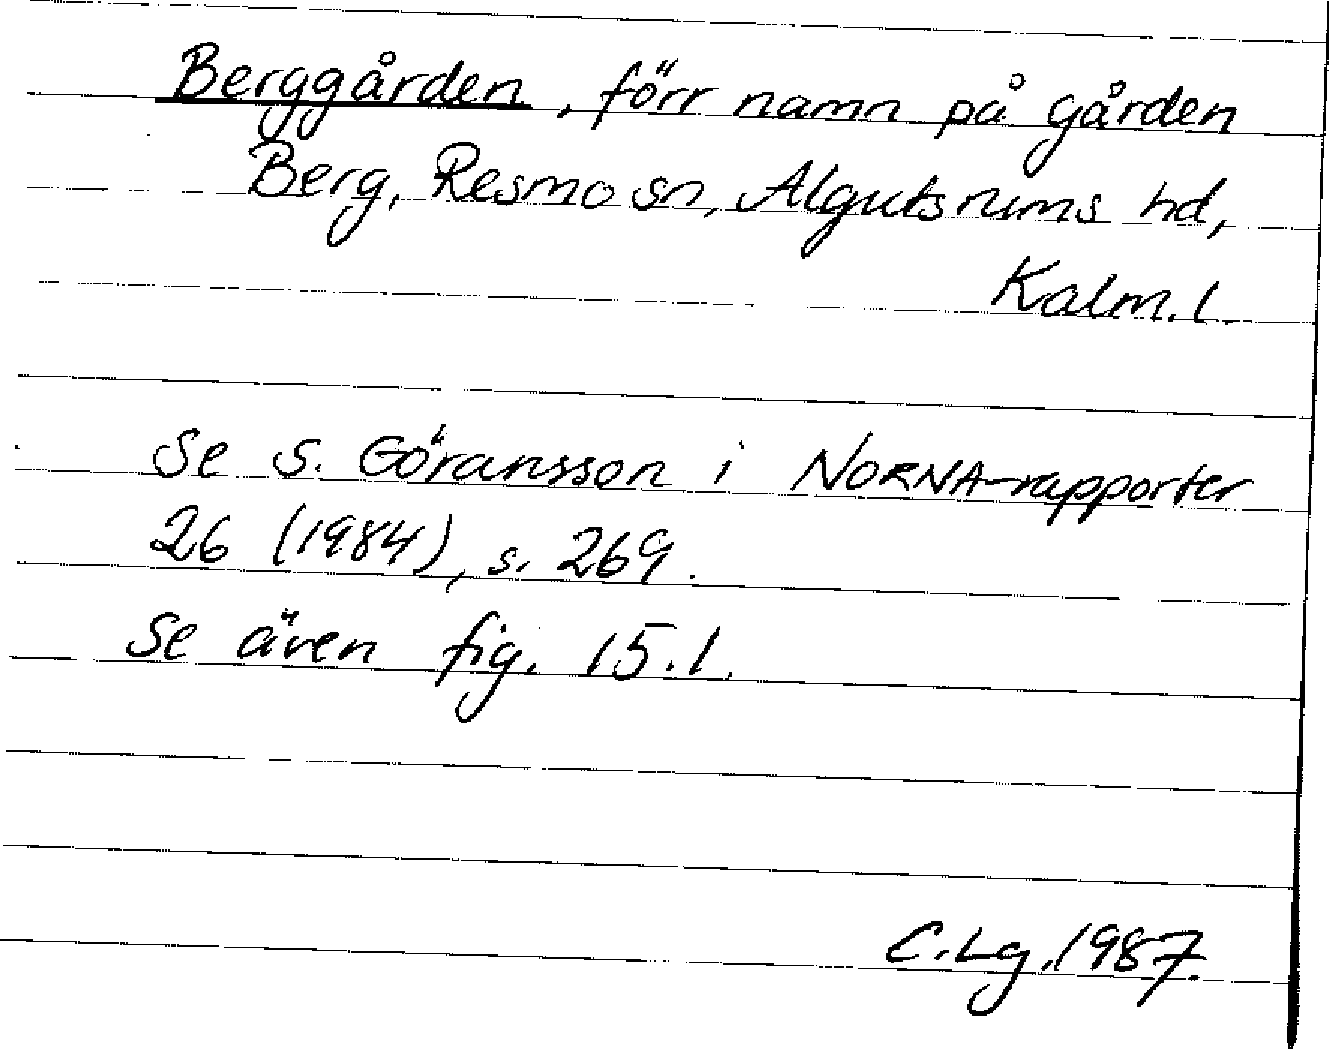 Berggården, förr namn på gården
Berg, Resmo sn, Algutsrums hd,
Kalm. l.
Se S. Göransson i NORNA-rapporter
26 (1984), s. 269.
Se även fig. 15.1.
C.Lg. 1987.